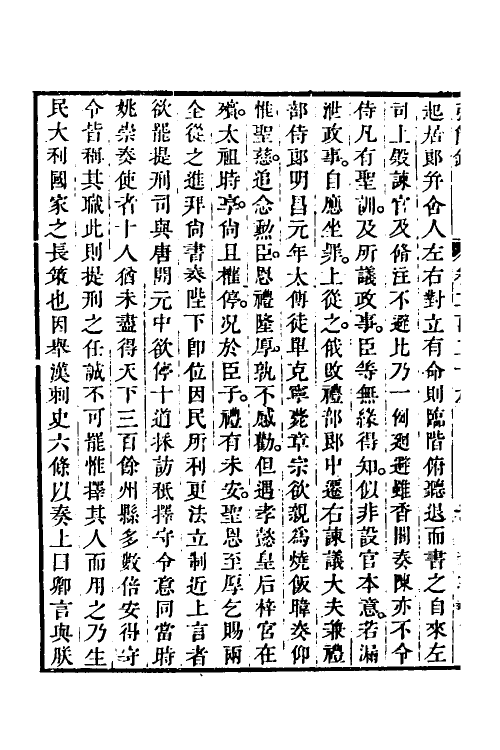 起居郎并舍人左右對立有命則臨階俯聽退而書之自來左
司上殿諫官及脩注不避比乃一例廻避雖香閣奏陳亦不令
侍凡有聖訓及所議政事。臣等無緣得知。似非設官本意。若漏
泄政事。自應坐罪。上從之。俄改禮部郎中遷右諫議大夫兼禮
部侍郎明昌元年太傅徒單克寧薨章宗欲親爲燒飯暐奏仰
惟聖慈。追念勳臣。恩禮隆厚。孰不感勸。但遇孝懿皇后梓宮在
殯。太祖時享。尙且權停。况於臣子。禮有未安。聖恩至厚乞賜兩
全從之進拜尙書奏陛下卽位因民所利更法立制近上言者
欲罷提刑司與唐開元中欲停十道採訪秖擇守令意同當時
姚崇奏使者十人猶未盡得天下三百餘州縣多數倍安得守
令皆稱其職此則提刑之任誠不可罷惟擇其人而用之乃生
民大利國家之長策也因舉漢刺史六條以奏上曰卿言與朕